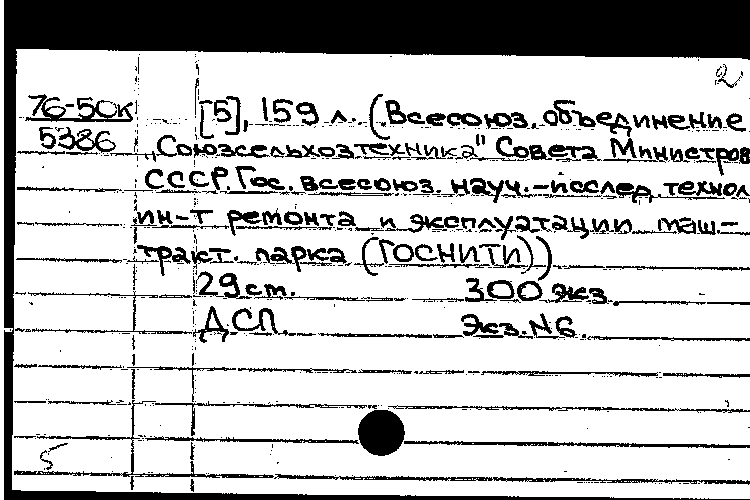 2
76-50к [5], 159 л. (Всесоюз. объединение
5386 „Союзсельхозтехника" Совета Министров
СССР. Гос. всесоюз. науч.-исслед. технол.
ин-т ремонта и эксплуатации маш.-
тракт. парка (ГОСНИТИ))
29 см. 300 экз.
ДСП. Экз. N6.
5